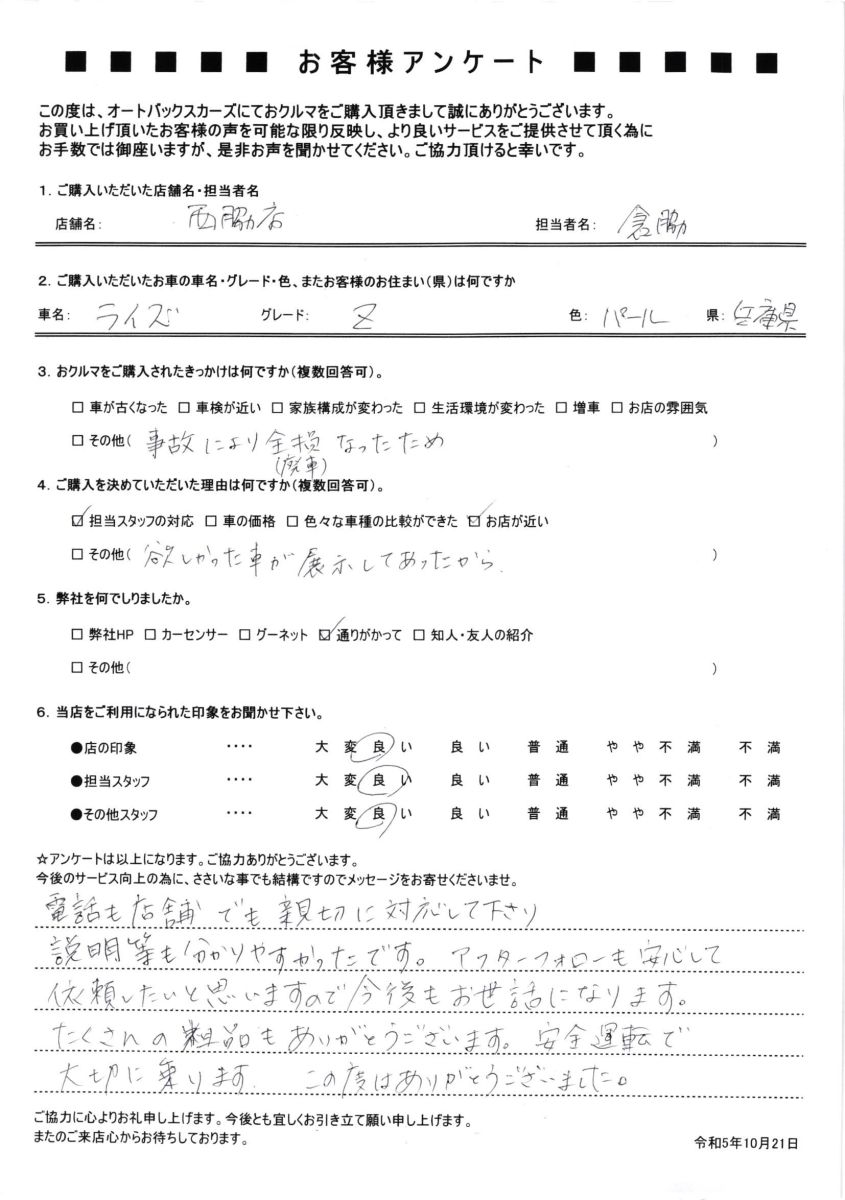 ■ ■ ■ ■ ■ お客様アンケート ■ ■ ■ ■ ■
この度は、オートバックスカーズにておクルマをご購入頂きまして誠にありがとうございます。
お買い上げ頂いたお客様の声を可能な限り反映し、より良いサービスをご提供させて頂く為に
お手数では御座いますが、是非お声を聞かせてください。ご協力頂けると幸いです。
1．ご購入いただいた店舗名・担当者名
店舗名： 西脇店 担当者名： 倉脇
2．ご購入いただいたお車の車名・グレード・色、またお客様のお住まい（県）は何ですか
車名： ライズ グレード： Z 色： パール 県： 兵庫県
3．おクルマをご購入されたきっかけは何ですか（複数回答可）。
□ 車が古くなった □ 車検が近い □ 家族構成が変わった □ 生活環境が変わった □ 増車 □ お店の雰囲気
□ その他（ 事故により全損なったため ）
（廃車）
4．ご購入を決めていただいた理由は何ですか（複数回答可）。
☑ 担当スタッフの対応 □ 車の価格 □ 色々な車種の比較ができた ☑ お店が近い
□ その他（ 欲しかった車が展示してあったから. ）
5．弊社を何でしりましたか。
□ 弊社HP □ カーセンサー □ グーネット ☑ 通りがかって □ 知人・友人の紹介
□ その他（ ）
6．当店をご利用になられた印象をお聞かせ下さい。
●店の印象 ‥‥ 大変良い 良い 普通 やや不満 不満
●担当スタッフ ‥‥ 大変良い 良い 普通 やや不満 不満
●その他スタッフ ‥‥ 大変良い 良い 普通 やや不満 不満
☆アンケートは以上になります。ご協力ありがとうございます。
今後のサービス向上の為に、ささいな事でも結構ですのでメッセージをお寄せくださいませ。
電話も店舗でも親切に対応して下さり
説明等も分かりやすかったです。アフターフォローも安心して
依頼したいと思いますので今後もお世話になります。
たくさんの粗品もありがとうございます。安全運転で
大切に乗ります. この度はありがとうございました。
ご協力に心よりお礼申し上げます。今後とも宜しくお引き立て願い申し上げます。
またのご来店心からお待ちしております。
令和5年10月21日